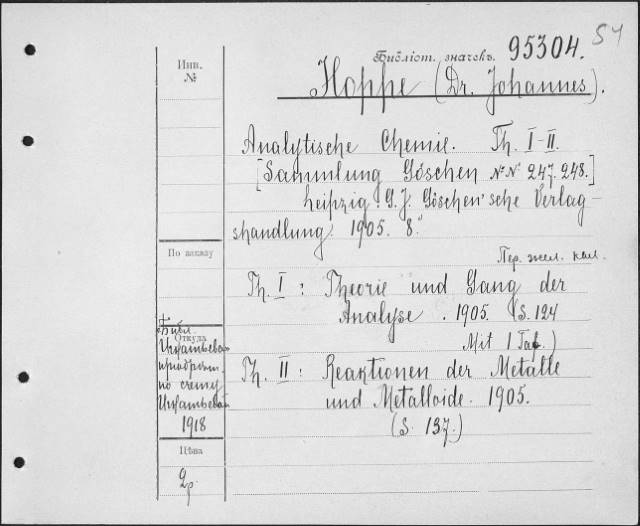 54
Библіот. значокъ. 95304.
Hoppe (Dr. Johannes).
Инв.
№
Analytische Chemie. Th. I-II.
[Sammlung Göschen №№ 247. 248.]
Leipzig. G. J. Göschen'sche Verlag-
shandlung 1905. 8°.
По заказу
Пер. жел. кал.
Th. I: Theorie und Gang der
Analyse. 1905. (S. 124
Mit 1 Taf.)
Откуда
Библ.
Игнатьевой
приобрет.
по счету
Игнатьевой
1918
Th. II: Reaktionen der Metalle
und Metalloide. 1905.
(S. 137.)
Цѣна
2р.